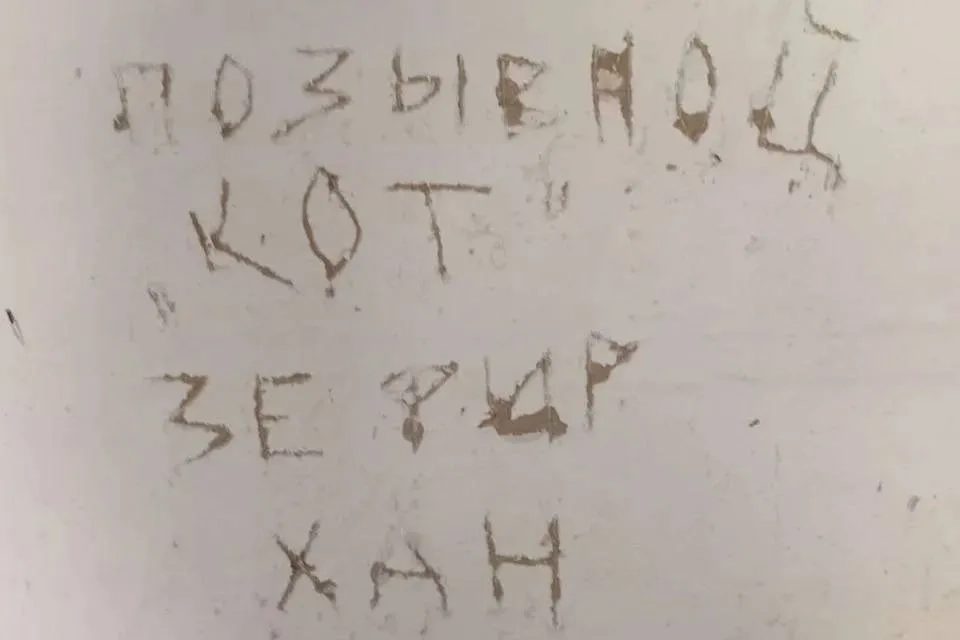 ПОЗЫВНОЙ
"КОТ"
ЗЕФИР
ХАН